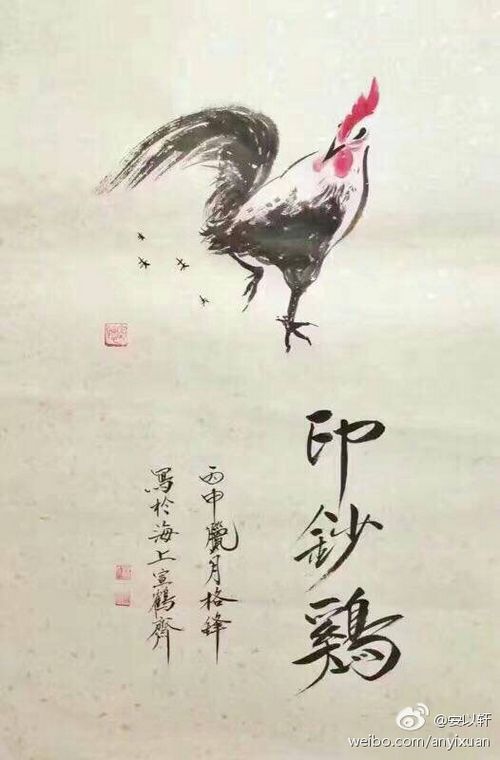 印鈔鷄
丙申臘月格鋒
寫於海上宣鶴齋
@安以轩
weibo.com/anyixuan